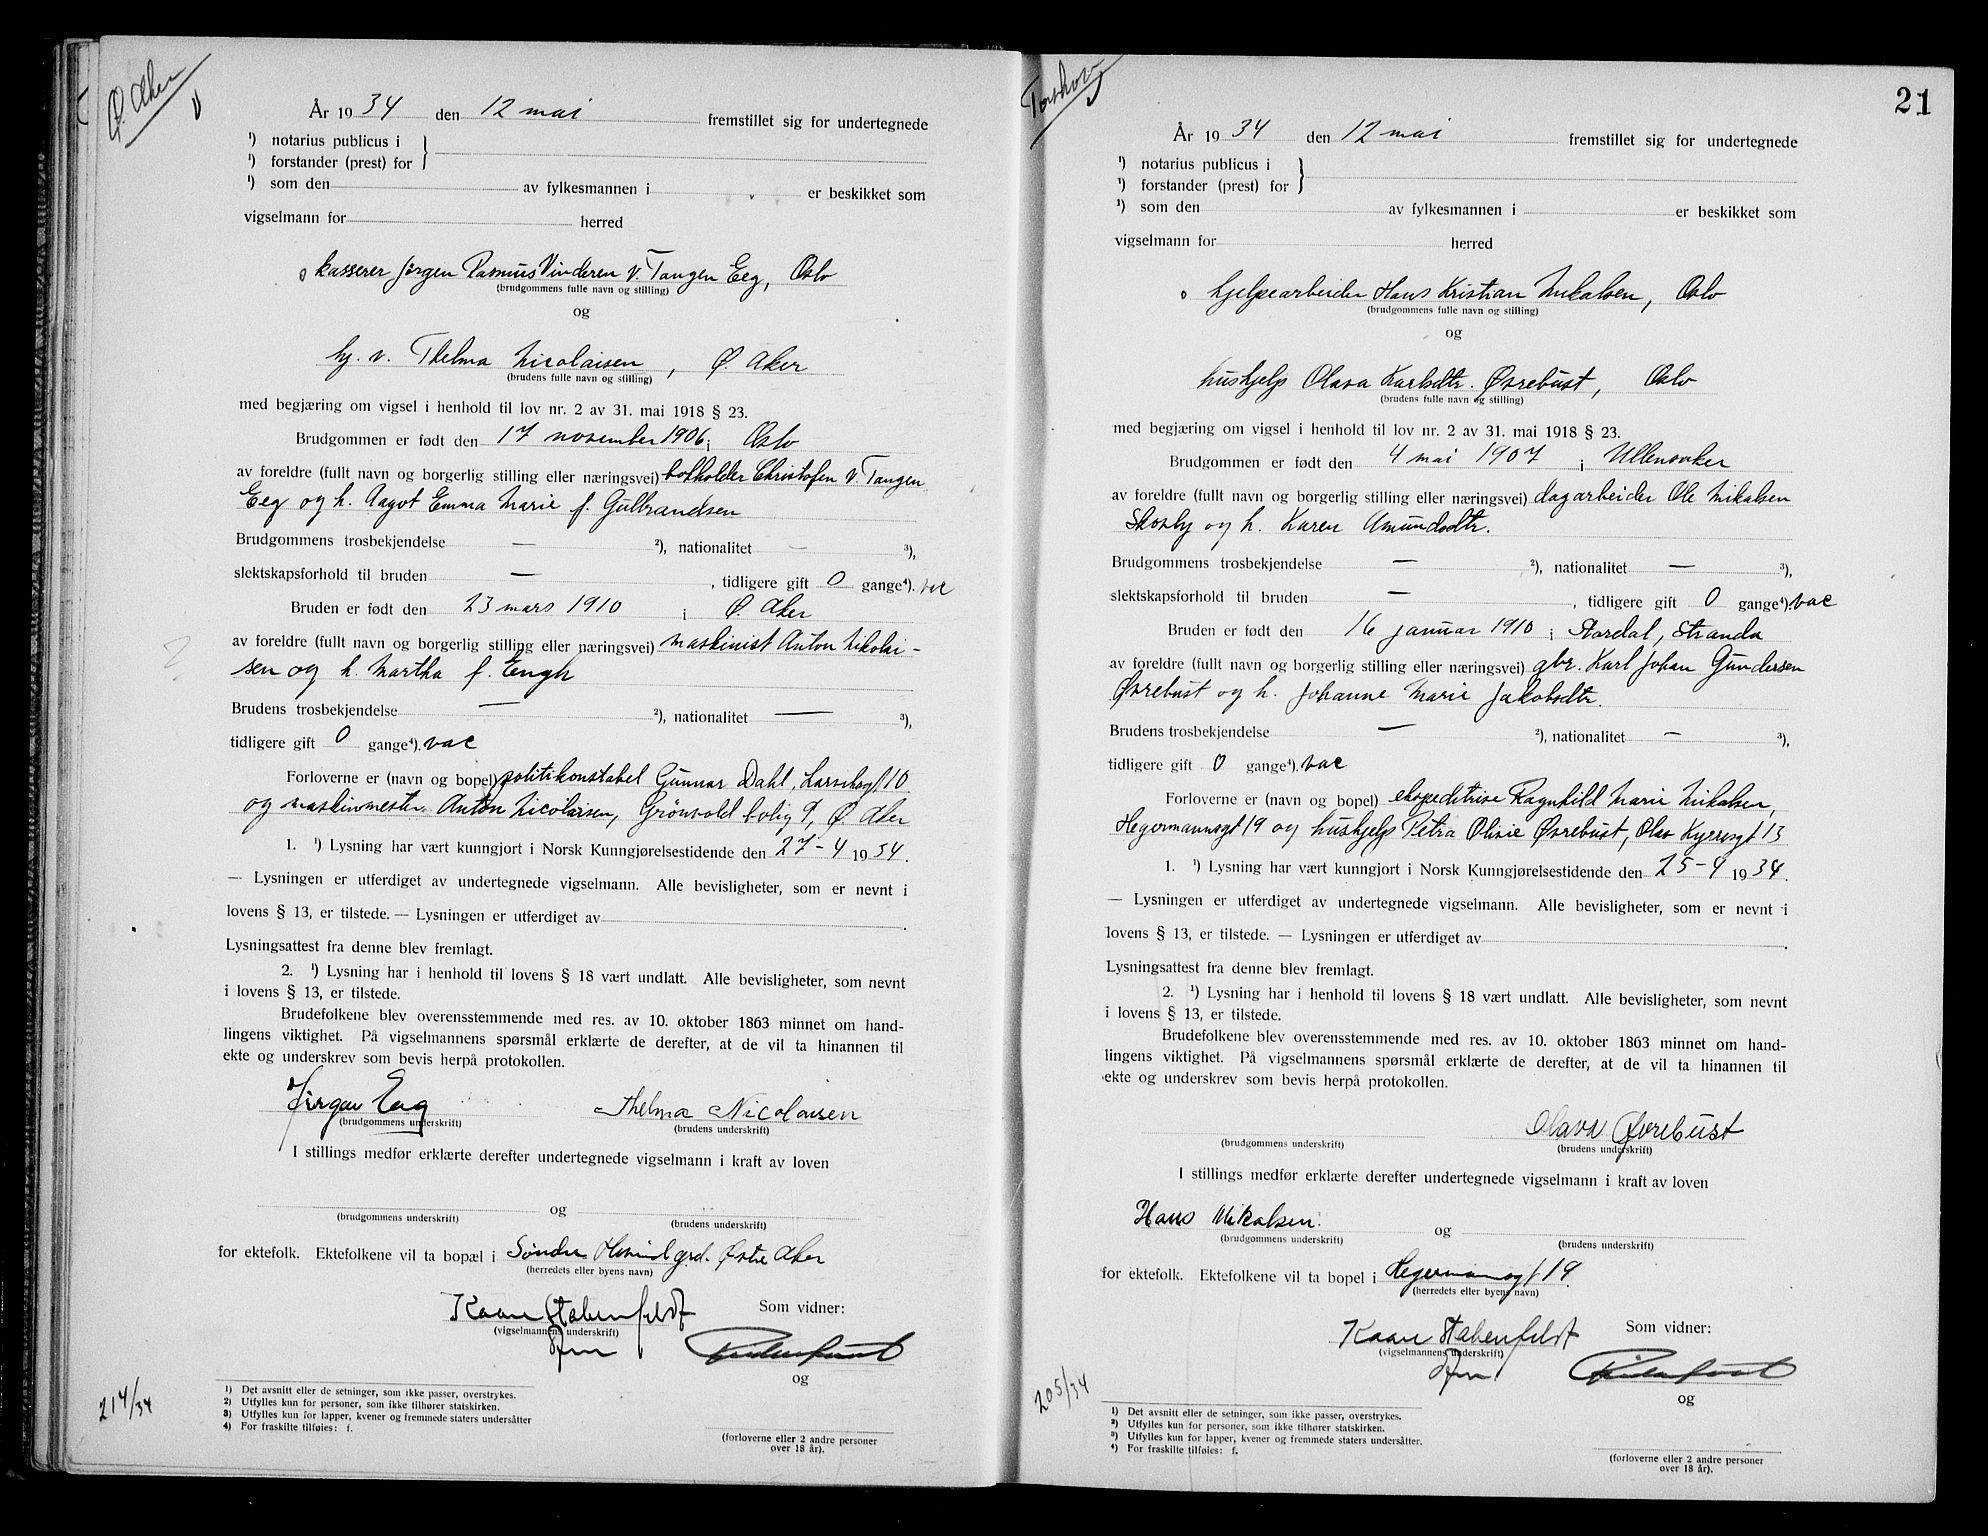 Ø. Aker
År 1934 den 12 mai fremstillet sig for undertegnede
¹) notarius publicus i
¹) forstander (prest) for
¹) som den av fylkesmannen i er beskikket som
vigselmann for herred
kasserer Jørgen Rasmus Vinderen v. Tangen Eeg, Oslo
(brudgommens fulle navn og stilling)
og
hj. v. Thelma Nicolaisen, Ø. Aker
(brudens fulle navn og stilling)
med begjæring om vigsel i henhold til lov nr. 2 av 31. mai 1918 § 23.
Brudgommen er født den 17 november 1906 i Oslo
av foreldre (fullt navn og borgerlig stilling eller næringsvei) bokholder Christofer v. Tangen
Eeg og h. Aagot Emma Marie f. Gulbrandsen
Brudgommens trosbekjendelse — ²), nationalitet — ³),
slektskapsforhold til bruden — , tidligere gift 0 gange⁴). vac
Bruden er født den 23 mars 1910 i Ø. Aker
av foreldre (fullt navn og borgerlig stilling eller næringsvei) maskinist Anton Nikolai-
sen og h. Martha f. Engh
Brudens trosbekjendelse — ²), nationalitet — ³),
tidligere gift 0 gange⁴). vac
Forloverne er (navn og bopel) politikonstabel Gunnar Dahl, Larschsgt 10
og maskinmester Anton Nicolaisen, Grönvold bolig 9, Ø. Aker
1. ¹) Lysning har vært kunngjort i Norsk Kunngjørelsestidende den 27-4 1934.
— Lysningen er utferdiget av undertegnede vigselmann. Alle bevisligheter, som er nevnt i
lovens § 13, er tilstede. — Lysningen er utferdiget av
Lysningsattest fra denne blev fremlagt.
2. ¹) Lysning har i henhold til lovens § 18 vært undlatt. Alle bevisligheter, som nevnt
i lovens § 13, er tilstede.
Brudefolkene blev overensstemmende med res. av 10. oktober 1863 minnet om hand-
lingens viktighet. På vigselmannens spørsmål erklærte de derefter, at de vil ta hinannen til
ekte og underskrev som bevis herpå protokollen.
Jørgen Eeg Thelma Nicolaisen
(brudgommens underskrift) (brudens underskrift)
I stillings medfør erklærte derefter undertegnede vigselmann i kraft av loven
og
(brudgommens underskrift) (brudens underskrift)
for ektefolk. Ektefolkene vil ta bopæl i Søndre grd. Østre Aker
(herredets eller byens navn)
Kaare Habenfeldt Som vidner:
(vigselmannens underskrift)
og
214/34
¹) Det avsnitt eller de setninger, som ikke passer, overstrykes.
²) Utfylles kun for personer, som ikke tilhører statskirken.
³) Utfylles kun for lapper, kvener og fremmede staters undersåtter
⁴) For fraskilte tilføies: f.
(forloverne eller 2 andre personer
over 18 år).
Torshov
21
År 1934 den 12 mai fremstillet sig for undertegnede
¹) notarius publicus i
¹) forstander (prest) for
¹) som den av fylkesmannen i er beskikket som
vigselmann for herred
hjelpearbeider Hans Kristian Mikalsen, Oslo
(brudgommens fulle navn og stilling)
og
hushjelp Olava Karlsdtr. Øvrebust, Oslo
(brudens fulle navn og stilling)
med begjæring om vigsel i henhold til lov nr. 2 av 31. mai 1918 § 23.
Brudgommen er født den 4 mai 1907 i Ullensaker
av foreldre (fullt navn og borgerlig stilling eller næringsvei) dagarbeider Ole Mikalsen
Skosby og h. Karen Amundsdtr.
Brudgommens trosbekjendelse — ²), nationalitet — ³),
slektskapsforhold til bruden — , tidligere gift 0 gange⁴). vac
Bruden er født den 16 januar 1910 i Stordal, Stranda
av foreldre (fullt navn og borgerlig stilling eller næringsvei) gbr. Karl Johan Gundersen
Øvrebust og h. Johanne Marie Jakobsdtr.
Brudens trosbekjendelse — ²), nationalitet — ³),
tidligere gift 0 gange⁴). vac
Forloverne er (navn og bopel) ekspeditrise Ragnhild Marie Mikalsen,
Hegermannsgt 19 og hushjelp Petra Oline Øvrebust, Olav Kyrresgt 13
1. ¹) Lysning har vært kunngjort i Norsk Kunngjørelsestidende den 25-4 1934.
— Lysningen er utferdiget av undertegnede vigselmann. Alle bevisligheter, som er nevnt i
lovens § 13, er tilstede. — Lysningen er utferdiget av
Lysningsattest fra denne blev fremlagt.
2. ¹) Lysning har i henhold til lovens § 18 vært undlatt. Alle bevisligheter, som nevnt
i lovens § 13, er tilstede.
Brudefolkene blev overensstemmende med res. av 10. oktober 1863 minnet om hand-
lingens viktighet. På vigselmannens spørsmål erklærte de derefter, at de vil ta hinannen til
ekte og underskrev som bevis herpå protokollen.
Olava Øvrebust
(brudgommens underskrift) (brudens underskrift)
I stillings medfør erklærte derefter undertegnede vigselmann i kraft av loven
Hans Mikalsen. og
(brudgommens underskrift) (brudens underskrift)
for ektefolk. Ektefolkene vil ta bopel i Hegermannsgt 19.
(herredets eller byens navn)
Kaare Habenfeldt Som vidner:
(vigselmannens underskrift)
og
205/34
¹) Det avsnitt eller de setninger, som ikke passer, overstrykes.
²) Utfylles kun for personer, som ikke tilhører statskirken.
³) Utfylles kun for lapper, kvener og fremmede staters undersåtter.
⁴) For fraskilte tilføies: f.
(forloverne eller 2 andre personer
over 18 år).